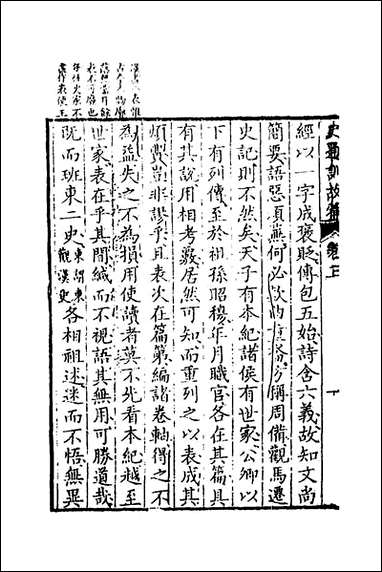 史通訓故補
經以一字成褒貶傳包五始詩含六義故知文尚
簡要語惡煩蕪何必款曲重沓方稱周備觀馬遷
史記則不然矣天子有本紀諸侯有世家公卿以
下有列傳至於祖孫昭穆年月職官各在其篇具
有其說用相考覈居然可知而重列之以表成其
煩費豈非謬乎且表次在篇第編諸卷軸得之不
為益失之不為損用使讀者莫不先看本紀越至
世家表在乎其間緘而不視語其無用可勝道哉
既而班東二史東朝東觀漢史各相祖述迷而不悟無異